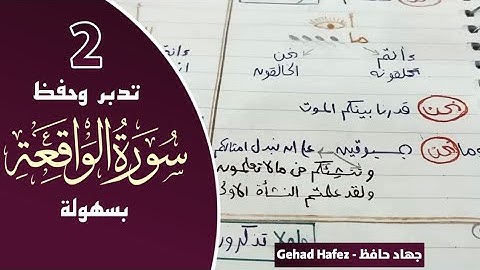 2
تدبر وحفظ
سورة الواقعة
بسهولة
ءأنتم
تخلقونه
نحن
الخالقون
نحن قدرنا بينكم الموت
وما نحن بمسبوقين
على أن نبدل أمثالكم
وننشئكم في ما لا تعلمون
ولقد علمتم النشأة الأولى
فلولا تذكرون
جهاد حافظ - Gehad Hafez